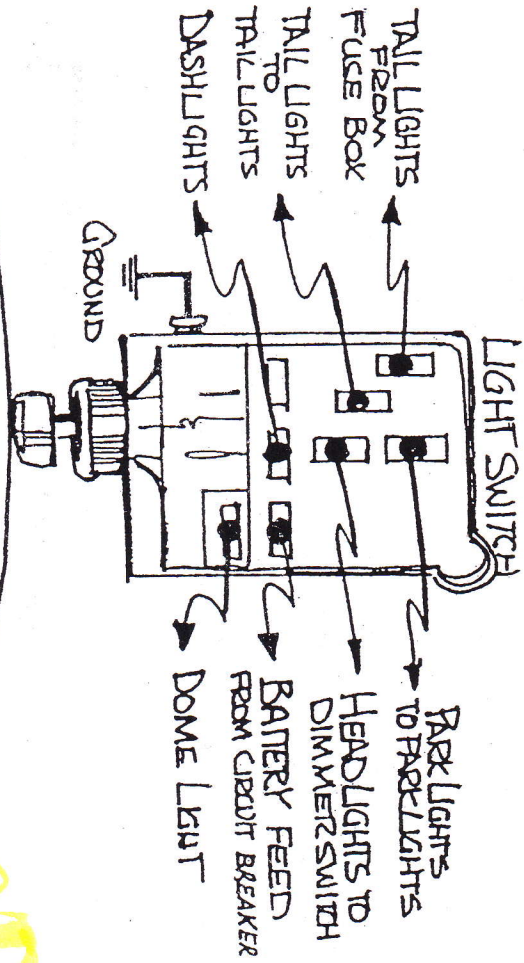 LIGHT SWITCH
TAIL LIGHTS
FROM
FUSE BOX
TAIL LIGHTS
TO
TAIL LIGHTS
DASHLIGHTS
GROUND
PARKLIGHTS
TO PARKLIGHTS
HEADLIGHTS TO
DIMMER SWITCH
BATTERY FEED
FROM CIRCUIT BREAKER
DOME LIGHT